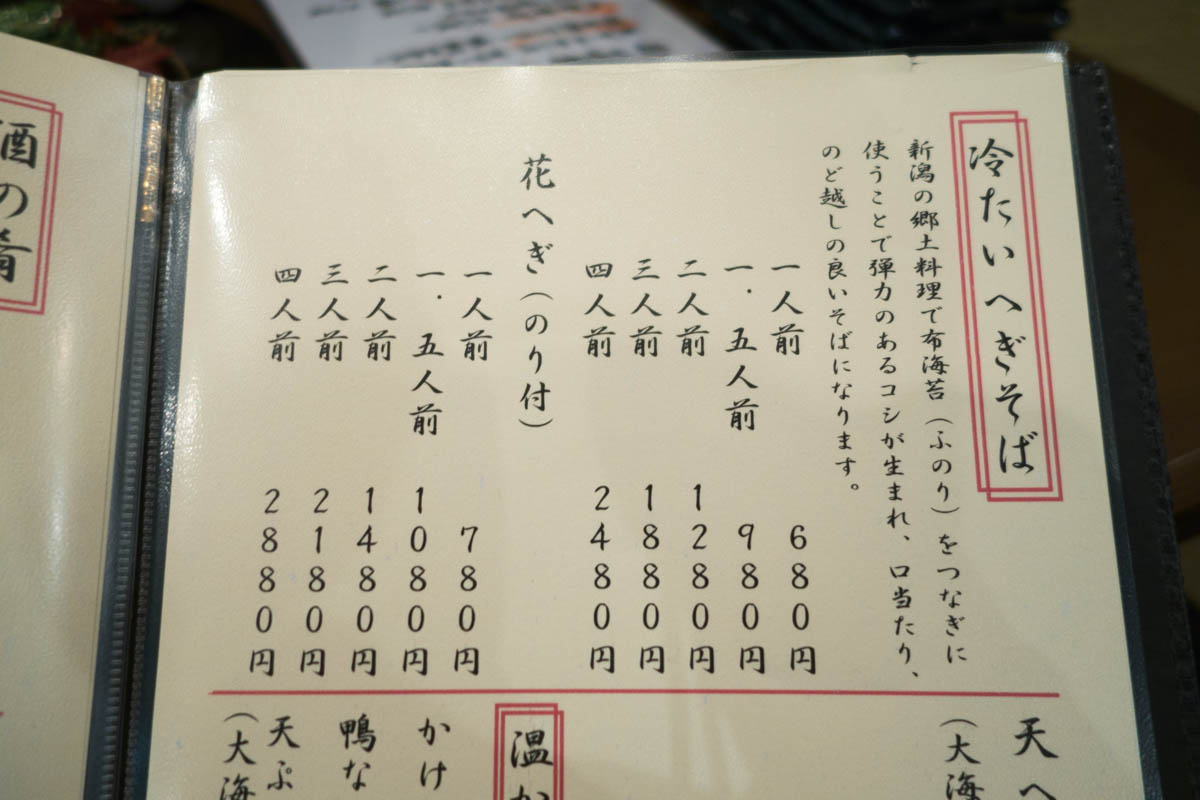 冷たいへぎそば
新潟の郷土料理で布海苔(ふのり)をつなぎに
使うことで弾力のあるコシが生まれ、口当たり、
のど越しの良いそばになります。
一人前 680円
一.五人前 980円
二人前 1280円
三人前 1880円
四人前 2480円
花へぎ(のり付)
一人前 780円
一.五人前 1080円
二人前 1480円
三人前 2180円
四人前 2880円
天へ
(大海
温か
かけ
鴨な
天ぷ
(大海
酒の肴